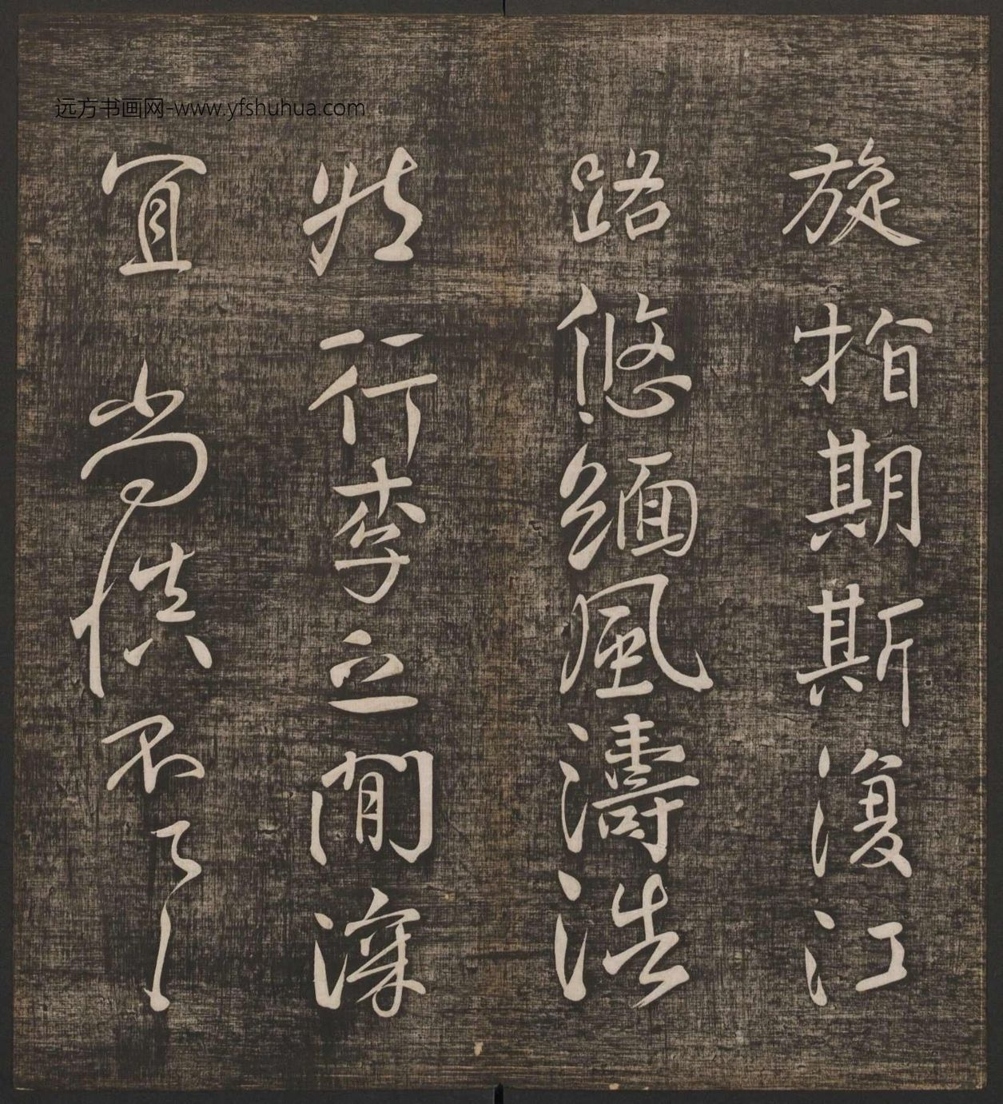 远方书画网-www.yfshuhua.com
旋指期斯復江
路悠緬風濤浩
然行李之間深
宜尚慎不了